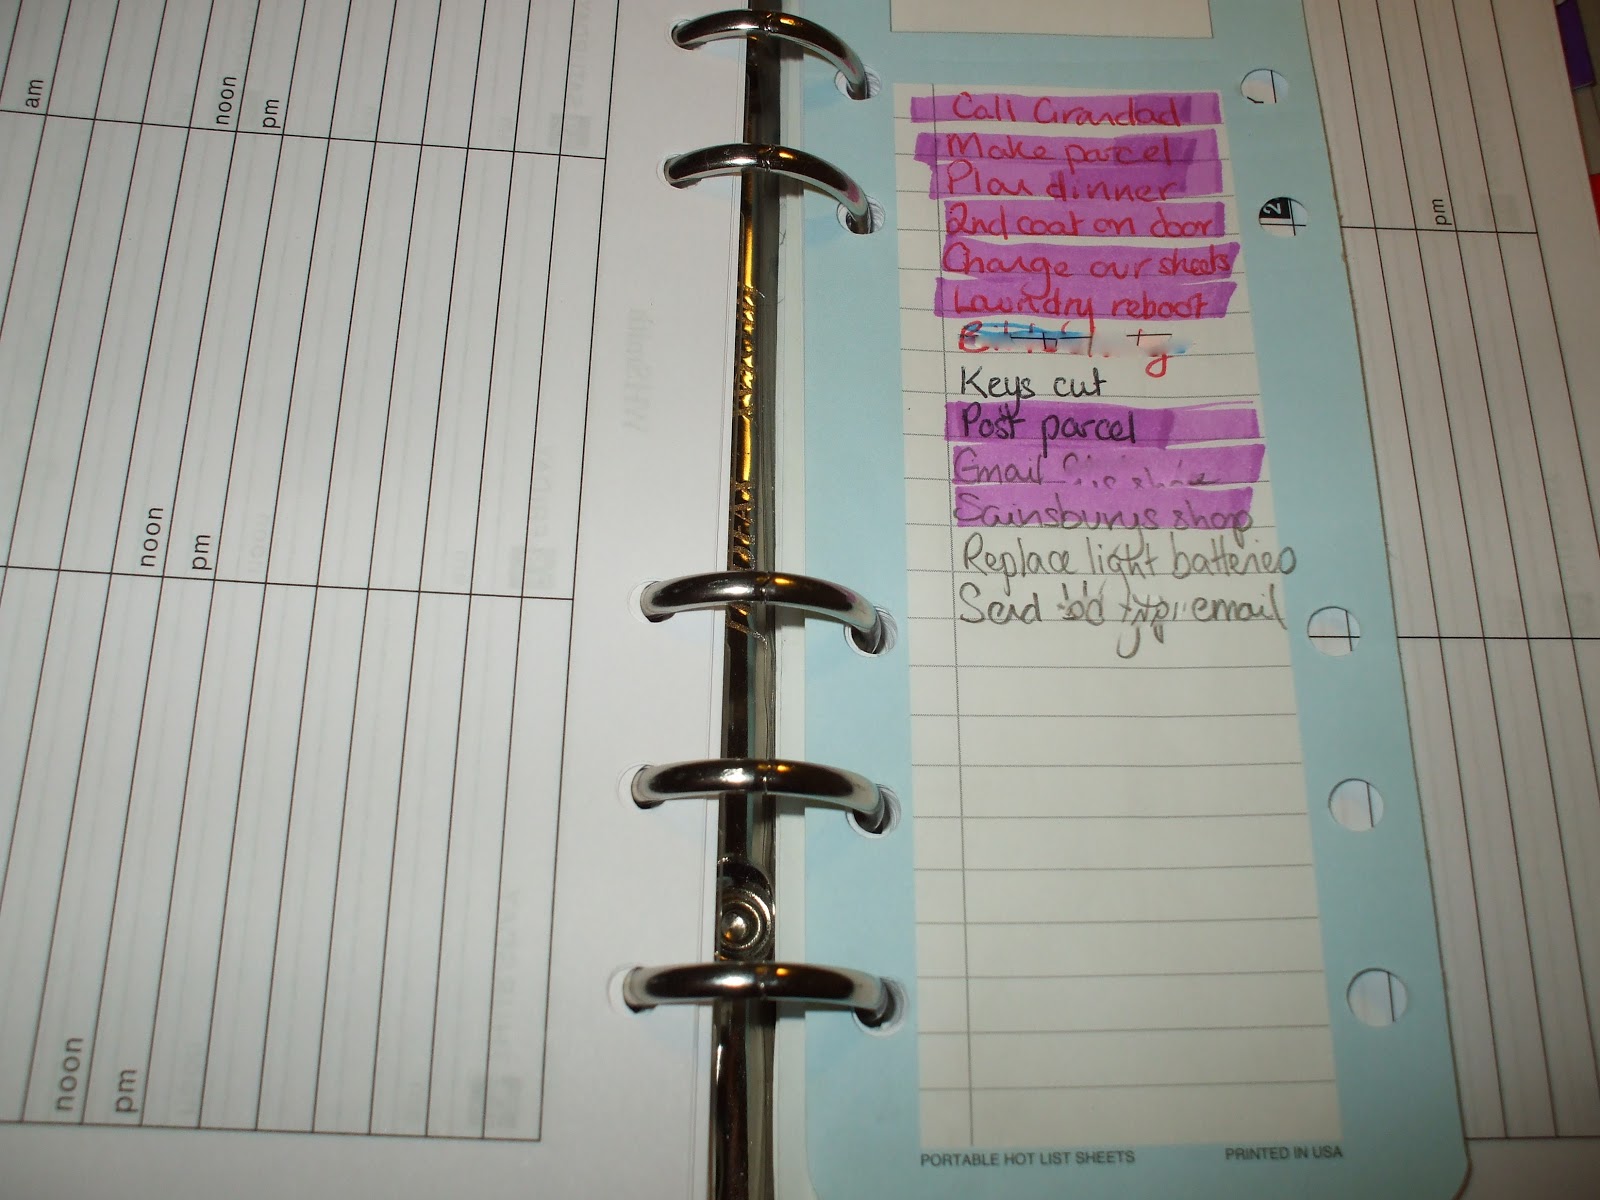 am
noon
pm
noon
pm
noon
pm
Call Grandad
Make parcel
Plan dinner
2nd coat on door
Change our sheets
Laundry reboot
Keys cut
Post parcel
Email
Sainsburys shop
Replace light batteries
Send email
PORTABLE HOT LIST SHEETS PRINTED IN USA
2
pm